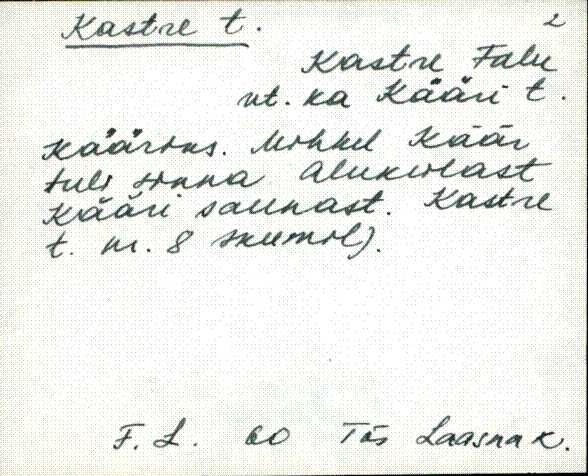 Kastre t. 2
Kastre Talu
vt. ka Kääri t.
Kääroks. Mihkel Käär
tuli sinna Alukülast
Kääri saunast. Kastre
t. nr. 8 skeemil).
F. L. 60 Tõs Laasna K.